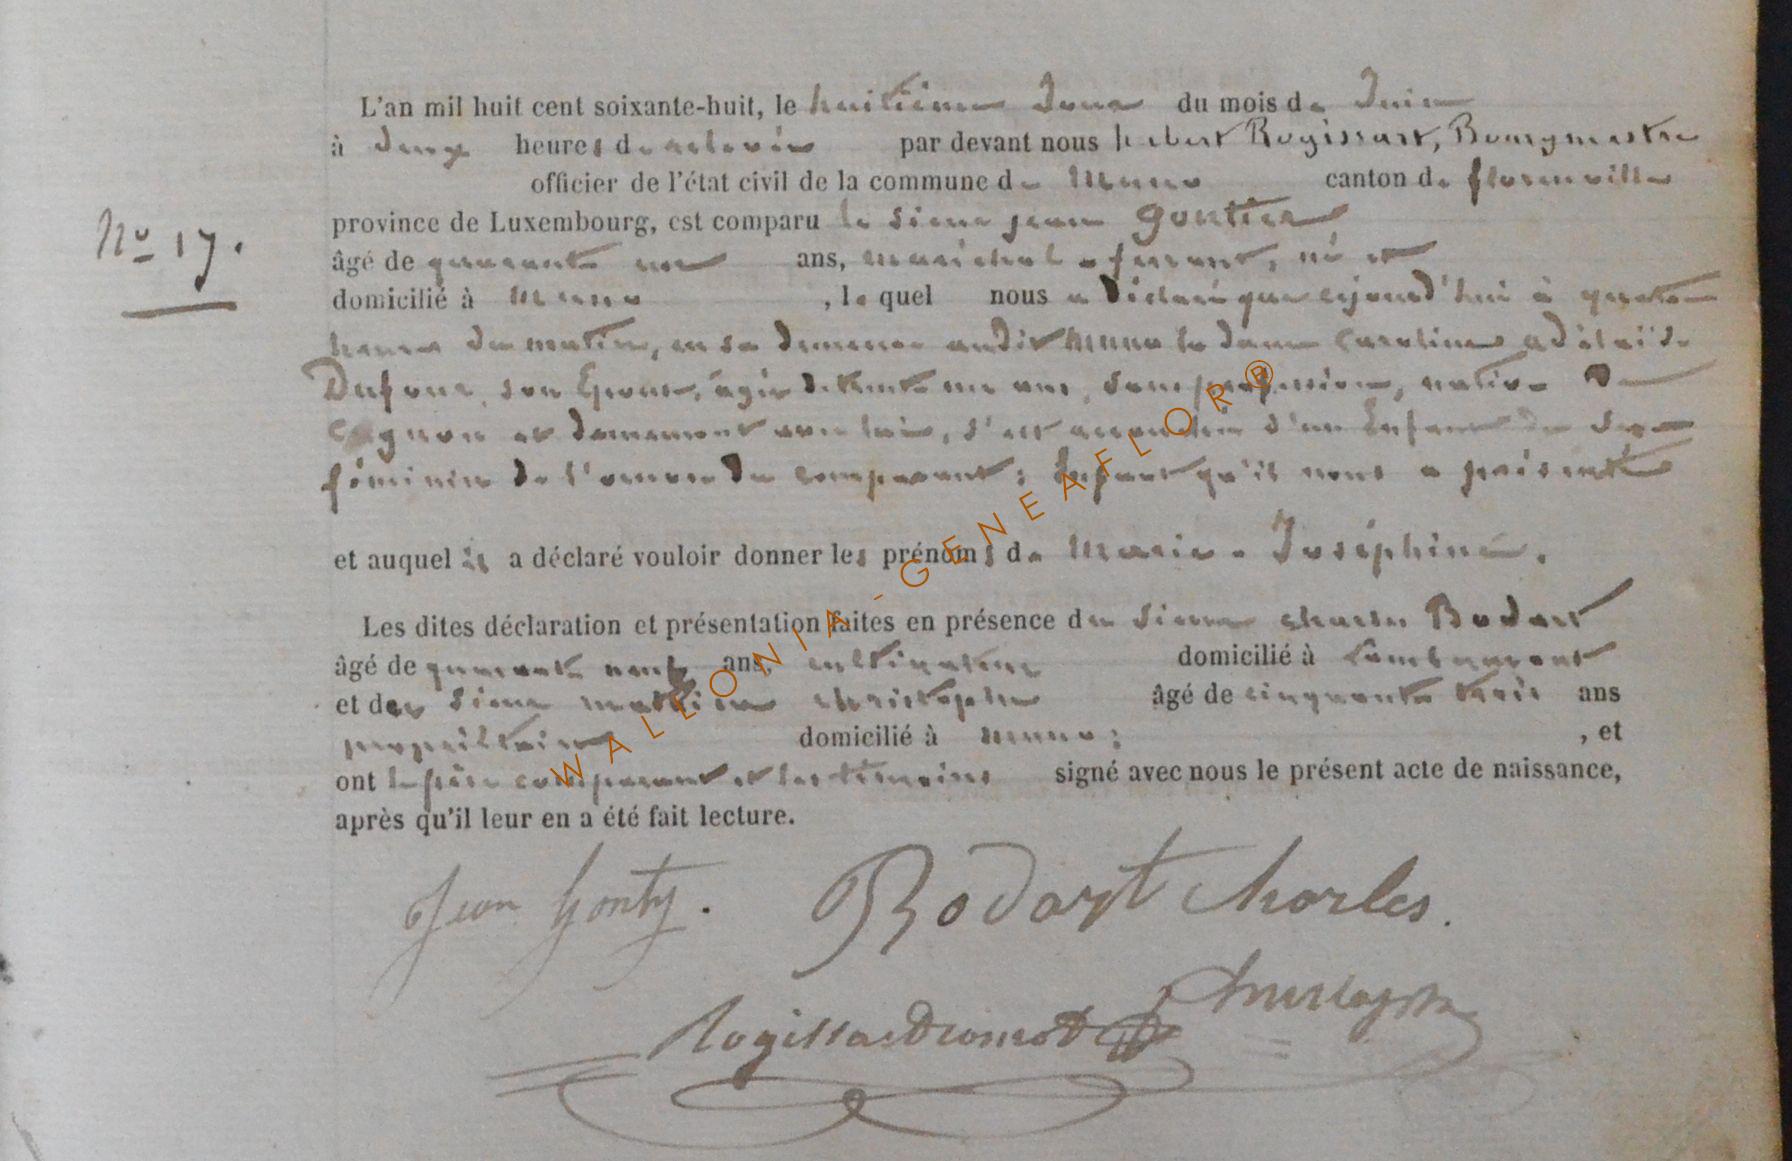 L'an mil huit cent soixante-huit, le huitième Jour du mois de Juin
à deux heures de relevée par devant nous hubert Rogissart, Bourgmestre
officier de l'état civil de la commune de Muno canton de florenville
N° 17.
province de Luxembourg, est comparu le sieur jean Gontier
âgé de quarante un ans, maréchal-ferrant, né et
domicilié à Muno, lequel nous a déclaré que cejourd'hui à quatre
heures du matin, en sa demeure audit Muno la dame Caroline adélaïde
Dufour, son Epouse, âgée de trente un ans, sans profession, native De
Cugnon et demeurant avec lui, s'est accouchée d'un Enfant du sexe
féminin de l'oeuvre du comparant; Enfant qu'il nous a présenté
et auquel il a déclaré vouloir donner les prénoms de Marie-Joséphine.
Les dites déclaration et présentation faites en présence du sieur charles Bodart
âgé de quarante neuf ans, cultivateur domicilié à Lambermont
et du sieur mathieu christophe âgé de cinquante trois ans
propriétaire domicilié à muno; , et
ont le père comparant et les témoins signé avec nous le présent acte de naissance,
après qu'il leur en a été fait lecture.
Jean Gonty. Bodart Charles.
WALLONIA-GENEAFLOR®